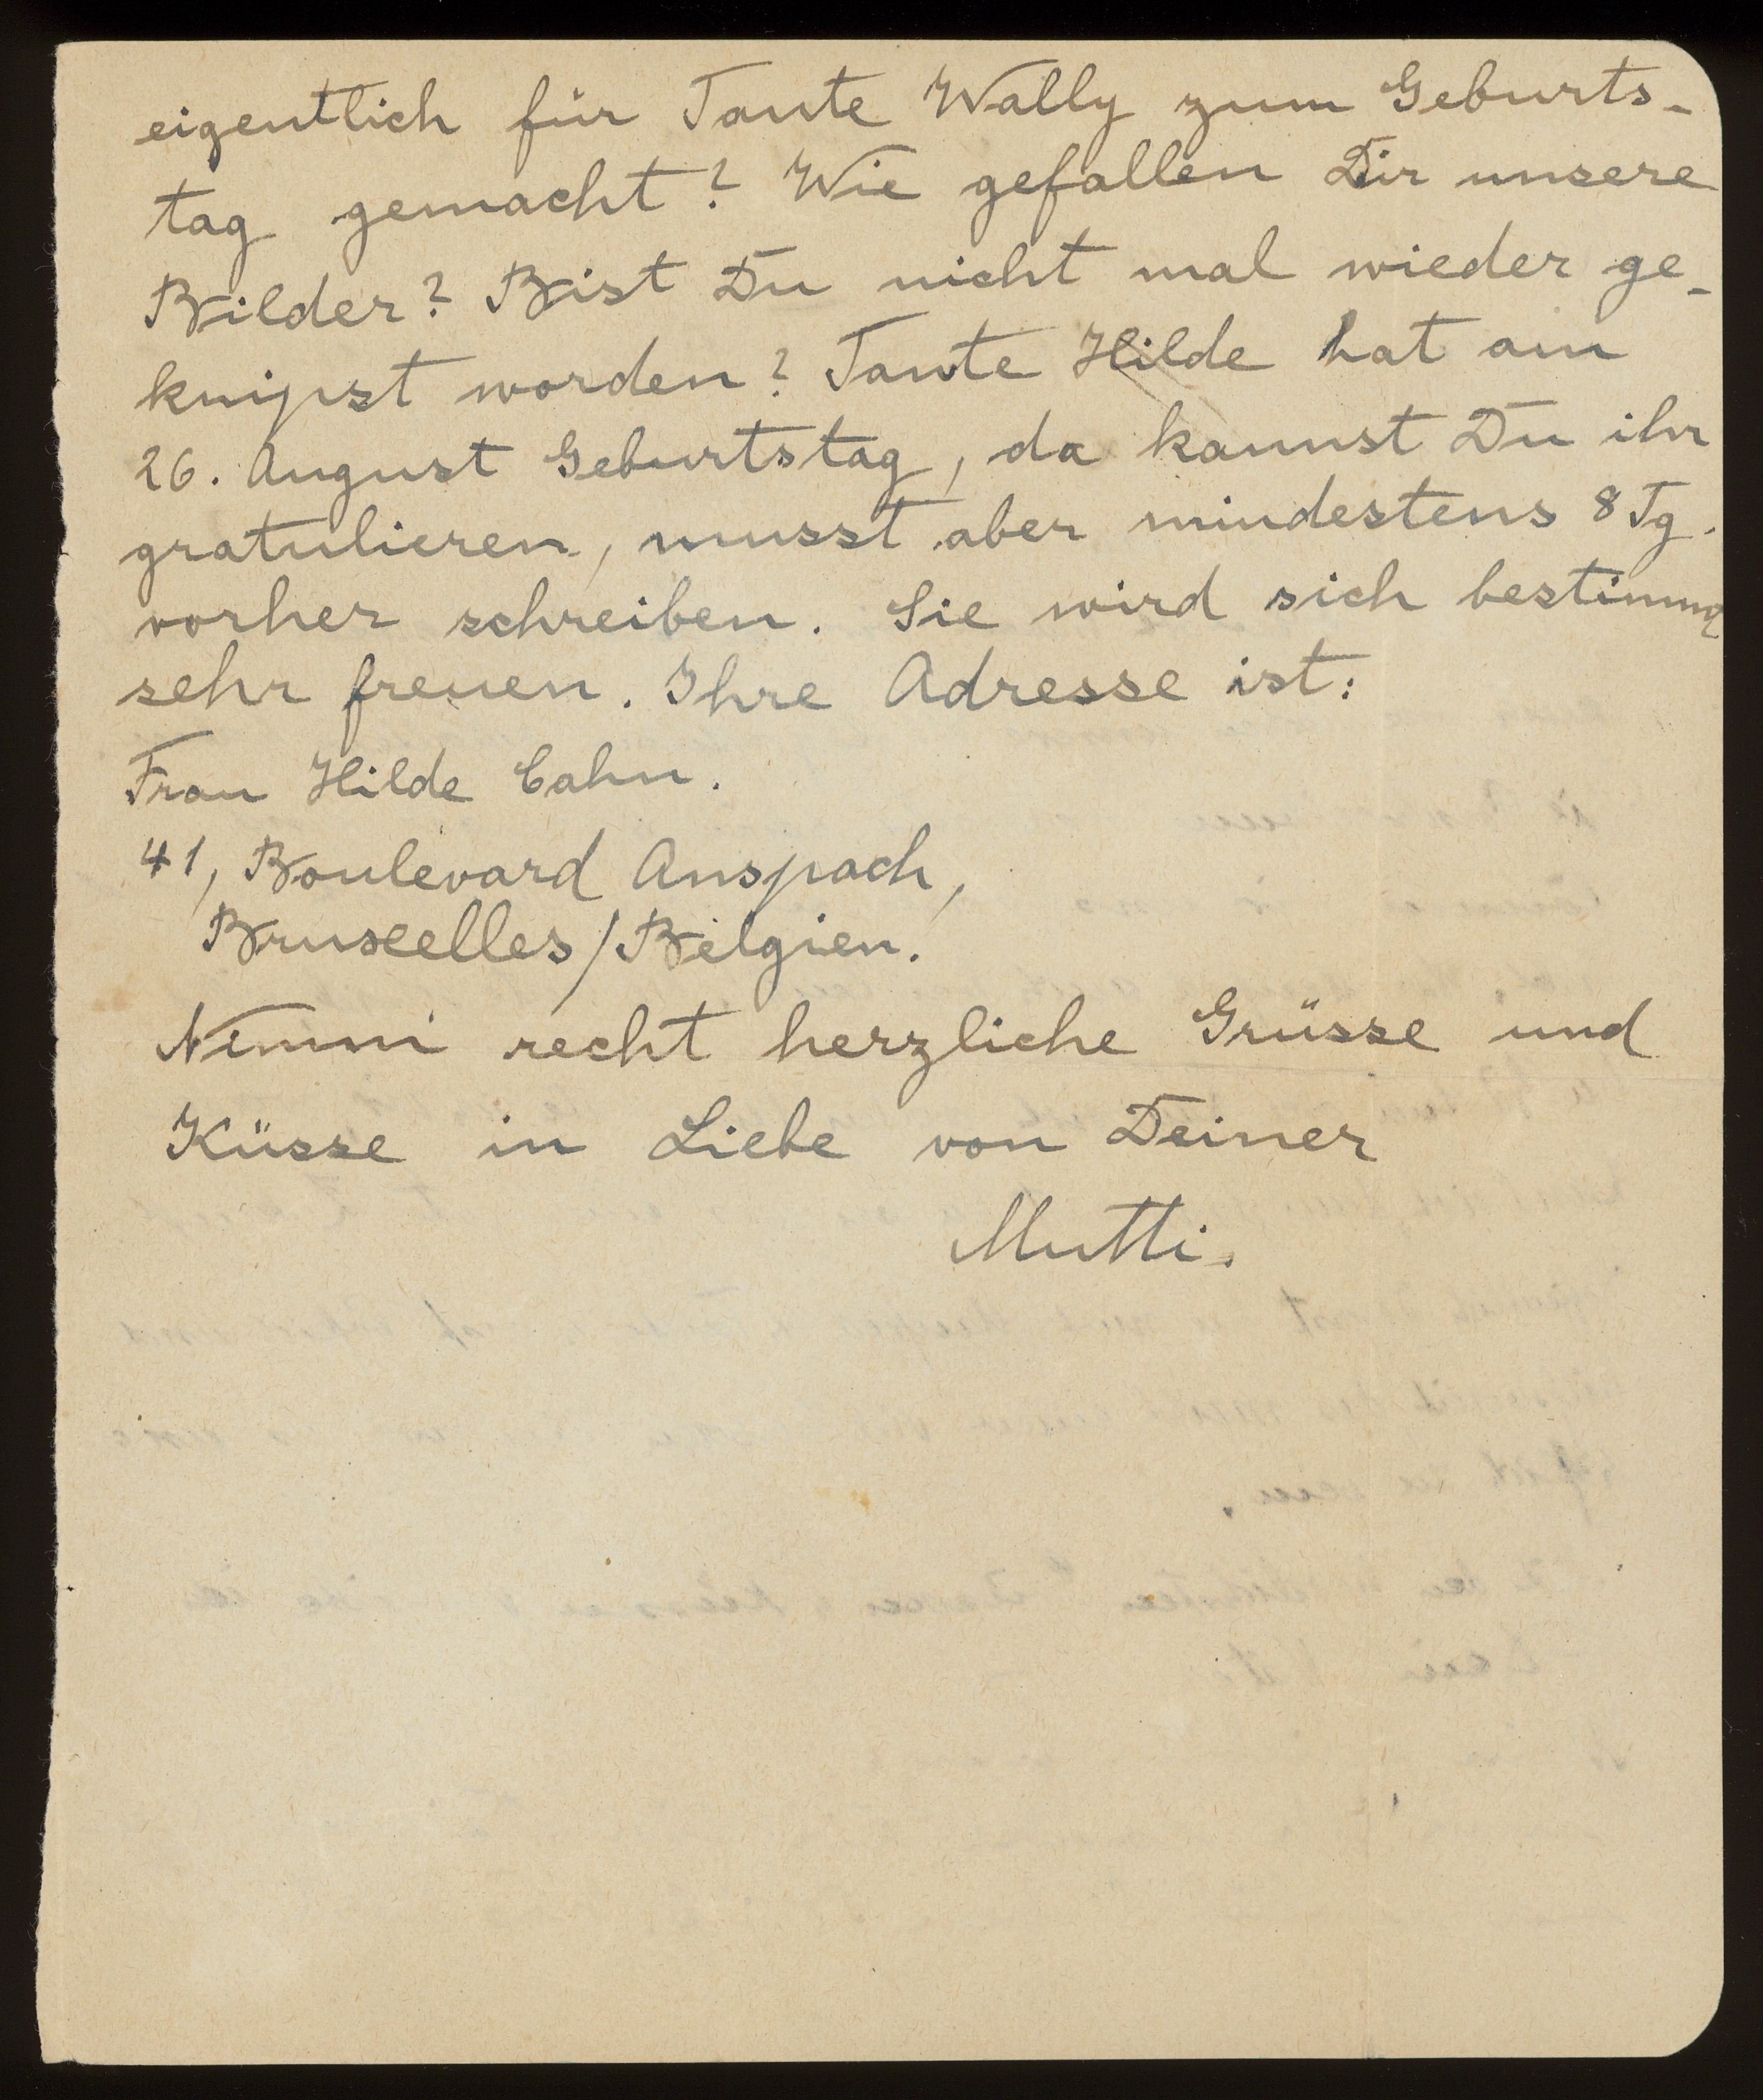 eigentlich für Tante Wally zum Geburts-
tag gemacht? Wie gefallen Dir unsere
Bilder? Bist Du nicht mal wieder ge-
knipst worden? Tante Hilde hat am
26. August Geburtstag, da kannst Du ihr
gratulieren, musst aber mindestens 8 Tg.
vorher schreiben. Sie wird sich bestimmt
sehr freuen. Ihre Adresse ist:
Frau Hilde Cahn.
41, Boulevard Anspach,
Bruxelles/Belgien.
Nimm recht herzliche Grüsse und
Küsse in Liebe von Deiner
Mutti.